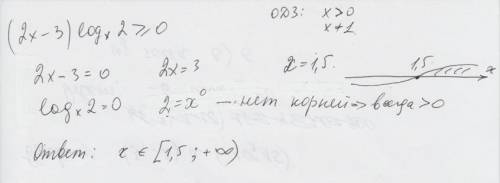 (2x-3) log_x 2 ≥ 0
ОДЗ: x>0
x≠1
2x-3=0 2x=3 x=1,5.
1,5 x
log_x 2=0 2=x^0 — нет корней ⇒ всегда >0
Ответ: x ∈ [1,5; +∞)